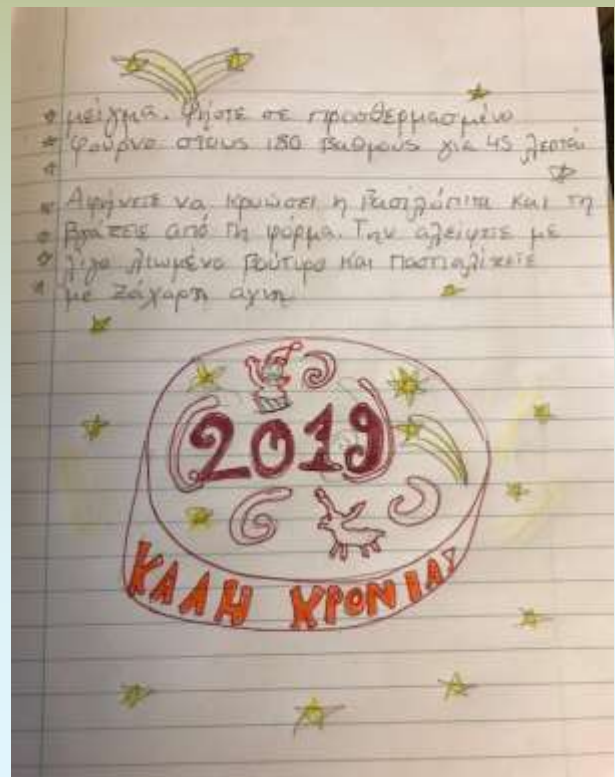 μείγμα. Ψήστε σε προσθερμασμένο
φούρνο στους 180 βαθμούς για 45 λεπτά
Αφήνετε να κρυώσει η βασιλόπιτα και τη
βγάζετε από τη φόρμα. Την αλείφετε με
λίγο λιωμένο βούτυρο και πασπαλίζετε
με ζάχαρη άχνη
2019
ΚΑΛΗ ΧΡΟΝΙΑ